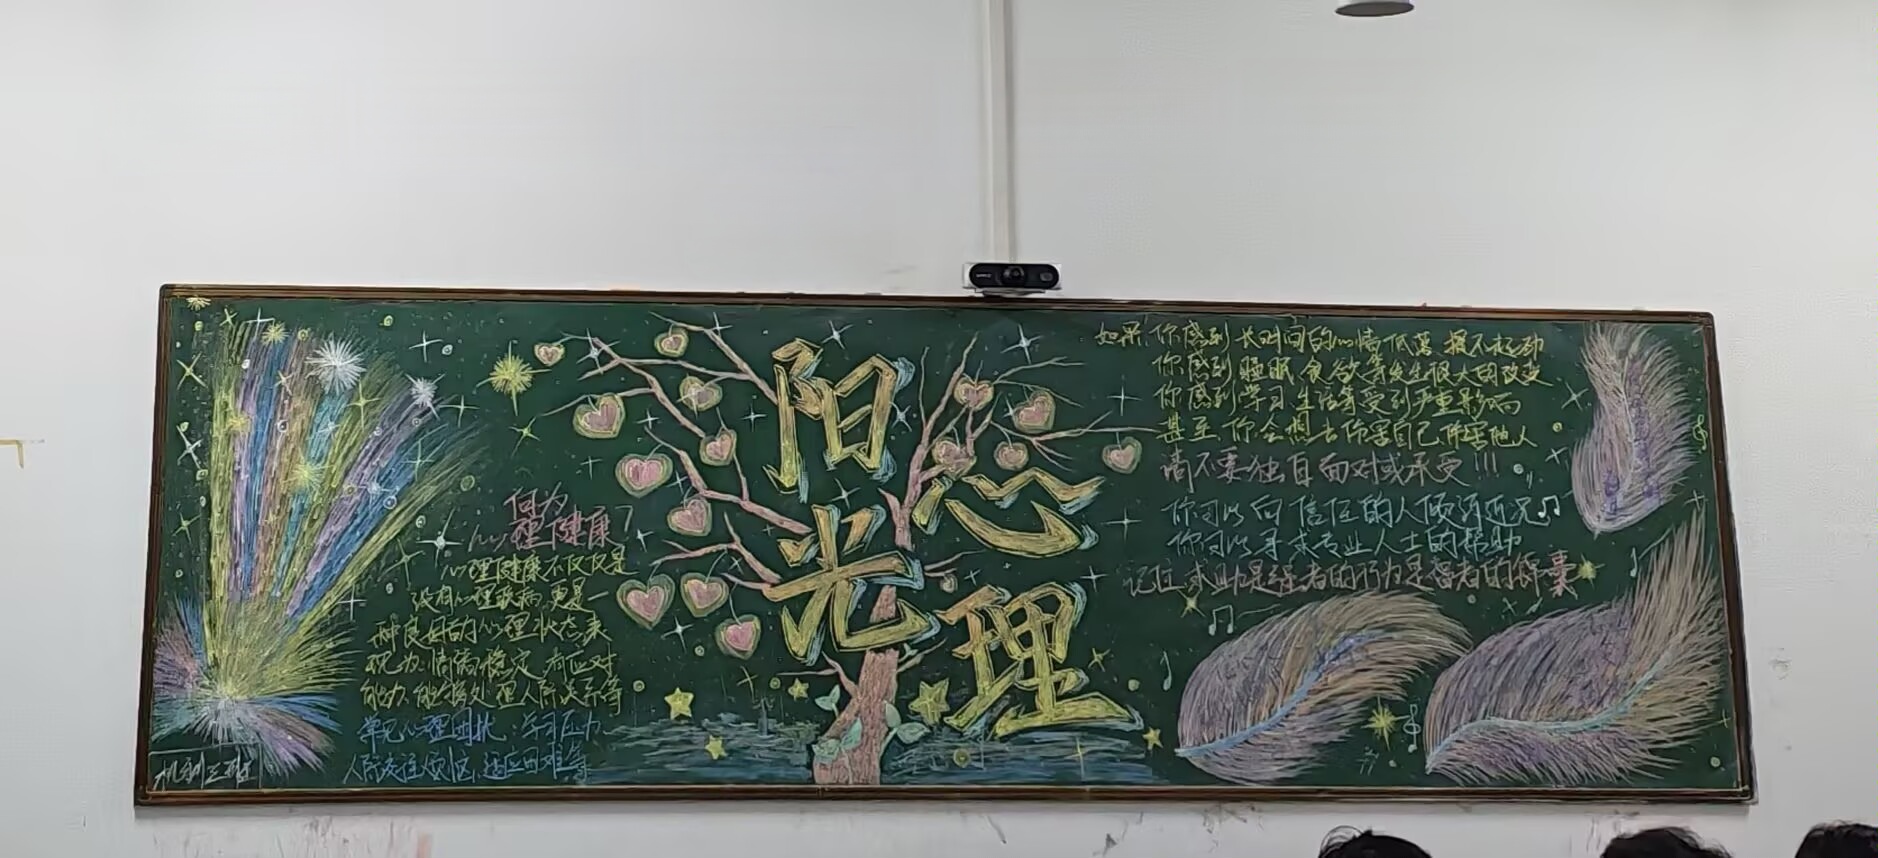 阳光
心理
何为
心理健康?
心理健康不仅仅是
没有心理疾病,更是一
种良好的心理状态,表
现为情绪稳定,有应对
能力,能够处理人际关系等
常见心理困扰:学习压力、
人际交往,适应困难等
如果你感到长时间的心情低落,提不起劲
你感到睡眠、食欲等发生很大的改变
你感到学习生活等受到严重影响
甚至你会想去伤害自己伤害他人
请不要独自面对或承受!!!
你可以向信任的人倾诉近况
你可以寻求专业人士的帮助
记住,求助是强者的行为是智者的锦囊
三班